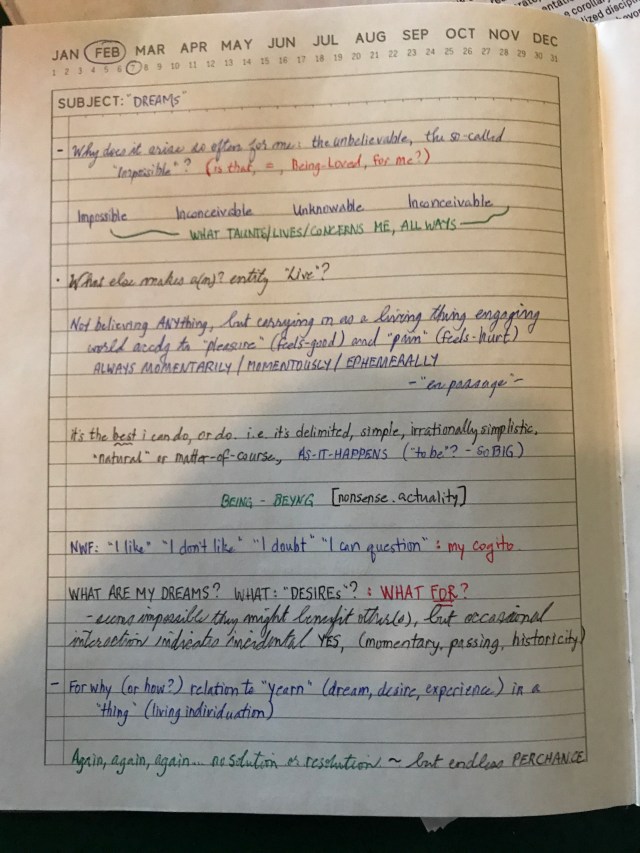 JAN FEB MAR APR MAY JUN JUL AUG SEP OCT NOV DEC
1 2 3 4 5 6 7 8 9 10 11 12 13 14 15 16 17 18 19 20 21 22 23 24 25 26 27 28 29 30 31
SUBJECT: "DREAMS"
- Why does it arise so often for me: the unbelievable, the so-called
"Impossible"? (is that, =, Being-Loved, for me?)
Impossible Inconceivable Unknowable Inconceivable
WHAT TAUNTS/LIVES/CONCERNS ME, ALL WAYS
· What else makes a(n)? entity "Live"?
Not believing ANYthing, but carrying on as a living thing engaging
world accdg to "pleasure" (feels-good) and "pain" (feels-hurt)
ALWAYS MOMENTARILY / MOMENTOUSLY / EPHEMERALLY
- "en passage" -
it's the best i can do, or do. i.e. it's delimited, simple, irrationally simplistic,
"natural" or matter-of-course, AS-IT-HAPPENS ("to be"? - SO BIG)
BEING - BEYNG [nonsense. actuality]
NWF: "I like" "I don't like" "I doubt" "I can question" : my cogito
WHAT ARE MY DREAMS? WHAT: "DESIREs"? : WHAT FOR?
- seems impossible they might benefit other(s), but occasional
intersection indicates incidental YES, (momentary, passing, historicity)
- For why (or how?) relation to "yearn" (dream, desire, experience) in a
"thing" (living individuation)
Again, again, again... no solution or resolution ~ but endless PERCHANCE